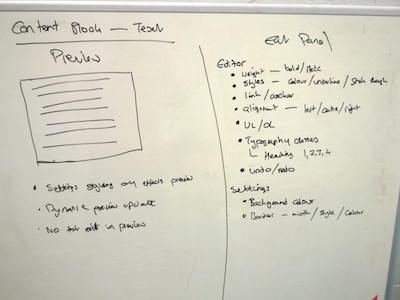 Content Block — Text
Preview
• Settings styling only effects preview
• Dynamic preview update
• No text edit in preview
Edit Panel
Editor
• Weight — bold/italic
• Styles — colour/underline/strike through
• link/anchor
• alignment — left/centre/right
• UL/OL
• Typography classes
Heading 1,2,3,4
• undo/redo
Settings
• Background colour
• Border — width/style/colour